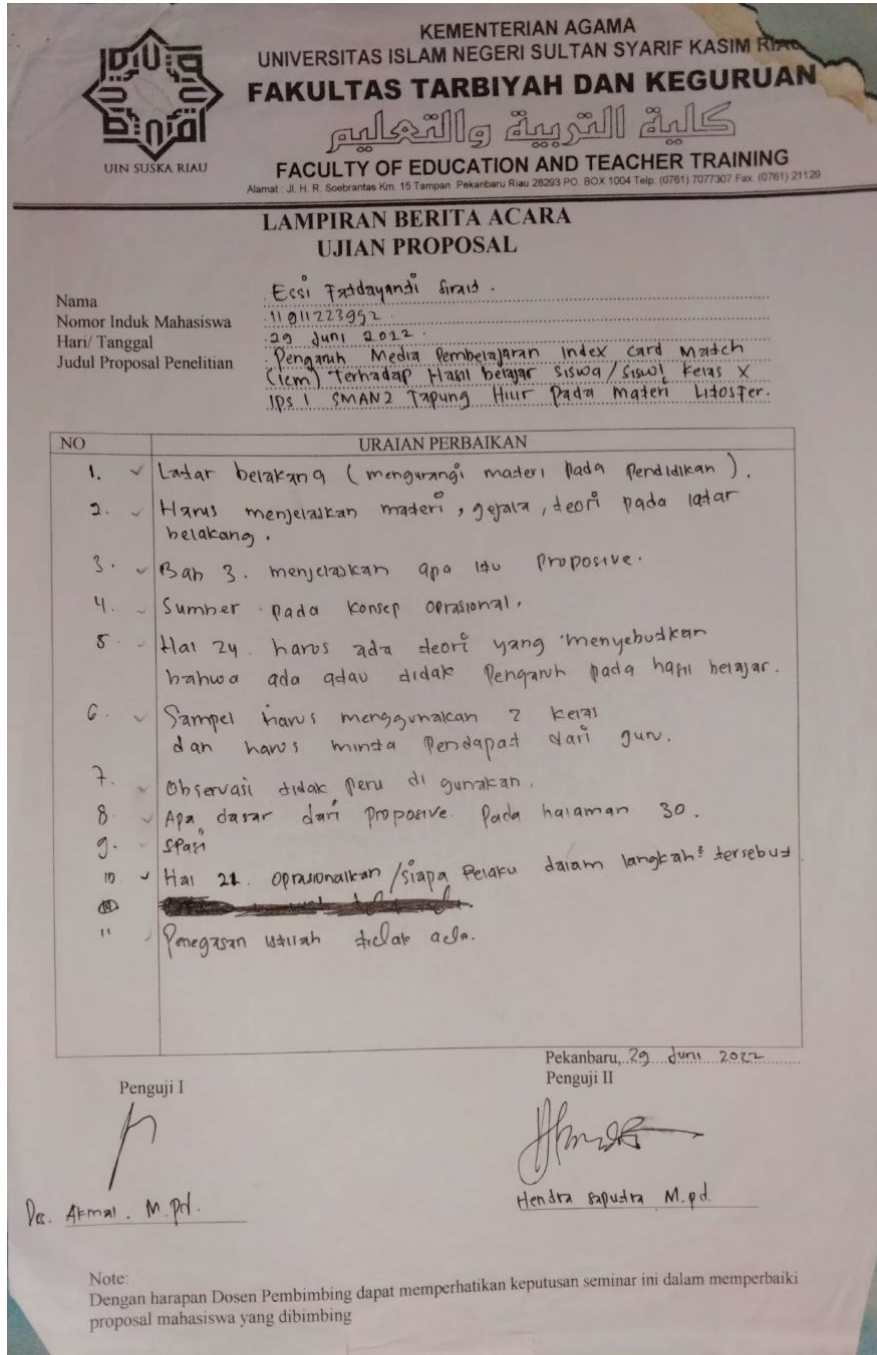 KEMENTERIAN AGAMA
UNIVERSITAS ISLAM NEGERI SULTAN SYARIF KASIM RIAU
FAKULTAS TARBIYAH DAN KEGURUAN
كلية التربية والتعليم
FACULTY OF EDUCATION AND TEACHER TRAINING
UIN SUSKA RIAU
Alamat : Jl. H. R. Soebrantas Km. 15 Tampan Pekanbaru Riau 28293 PO. BOX 1004 Telp. (0761) 7077307 Fax. (0761) 21129
LAMPIRAN BERITA ACARA
UJIAN PROPOSAL
Nama : Essi Sirait.
Nomor Induk Mahasiswa : 11911223952.
Hari/ Tanggal : 29 Juni 2022.
Judul Proposal Penelitian : Pengaruh Media Pembelajaran Index Card Match
(icm) Terhadap Hasil belajar siswa/siswi Kelas X
IPS 1 SMAN2 Tapung Hilir Pada Materi Litosfer.
NO URAIAN PERBAIKAN
1. ✓ Latar belakang (mengurangi materi pada Pendidikan).
2. ✓ Harus menjelaskan materi, gejala, teori pada latar
belakang.
3. ✓ Bab 3. menjelaskan apa itu Proposive.
4. ✓ Sumber pada konsep oprasional.
5. ✓ Hal 24. harus ada teori yang menyebutkan
bahwa ada atau tidak Pengaruh pada hasil belajar.
6. ✓ Sampel harus menggunakan 2 kelas
dan harus minta Pendapat dari guru.
7. ✓ Observasi tidak peru di gunakan.
8. ✓ Apa dasar dari proposive. Pada halaman 30.
9. ✓ Spasi
10 ✓ Hal 21. oprasionalkan/siapa Pelaku dalam langkah² tersebut
11 ✓ Penegasan istilah tidak ada.
Pekanbaru, 29 Juni 2022
Penguji I Penguji II
Drs. Akmal. M.Pd. Hendra Saputra M.pd.
Note:
Dengan harapan Dosen Pembimbing dapat memperhatikan keputusan seminar ini dalam memperbaiki
proposal mahasiswa yang dibimbing